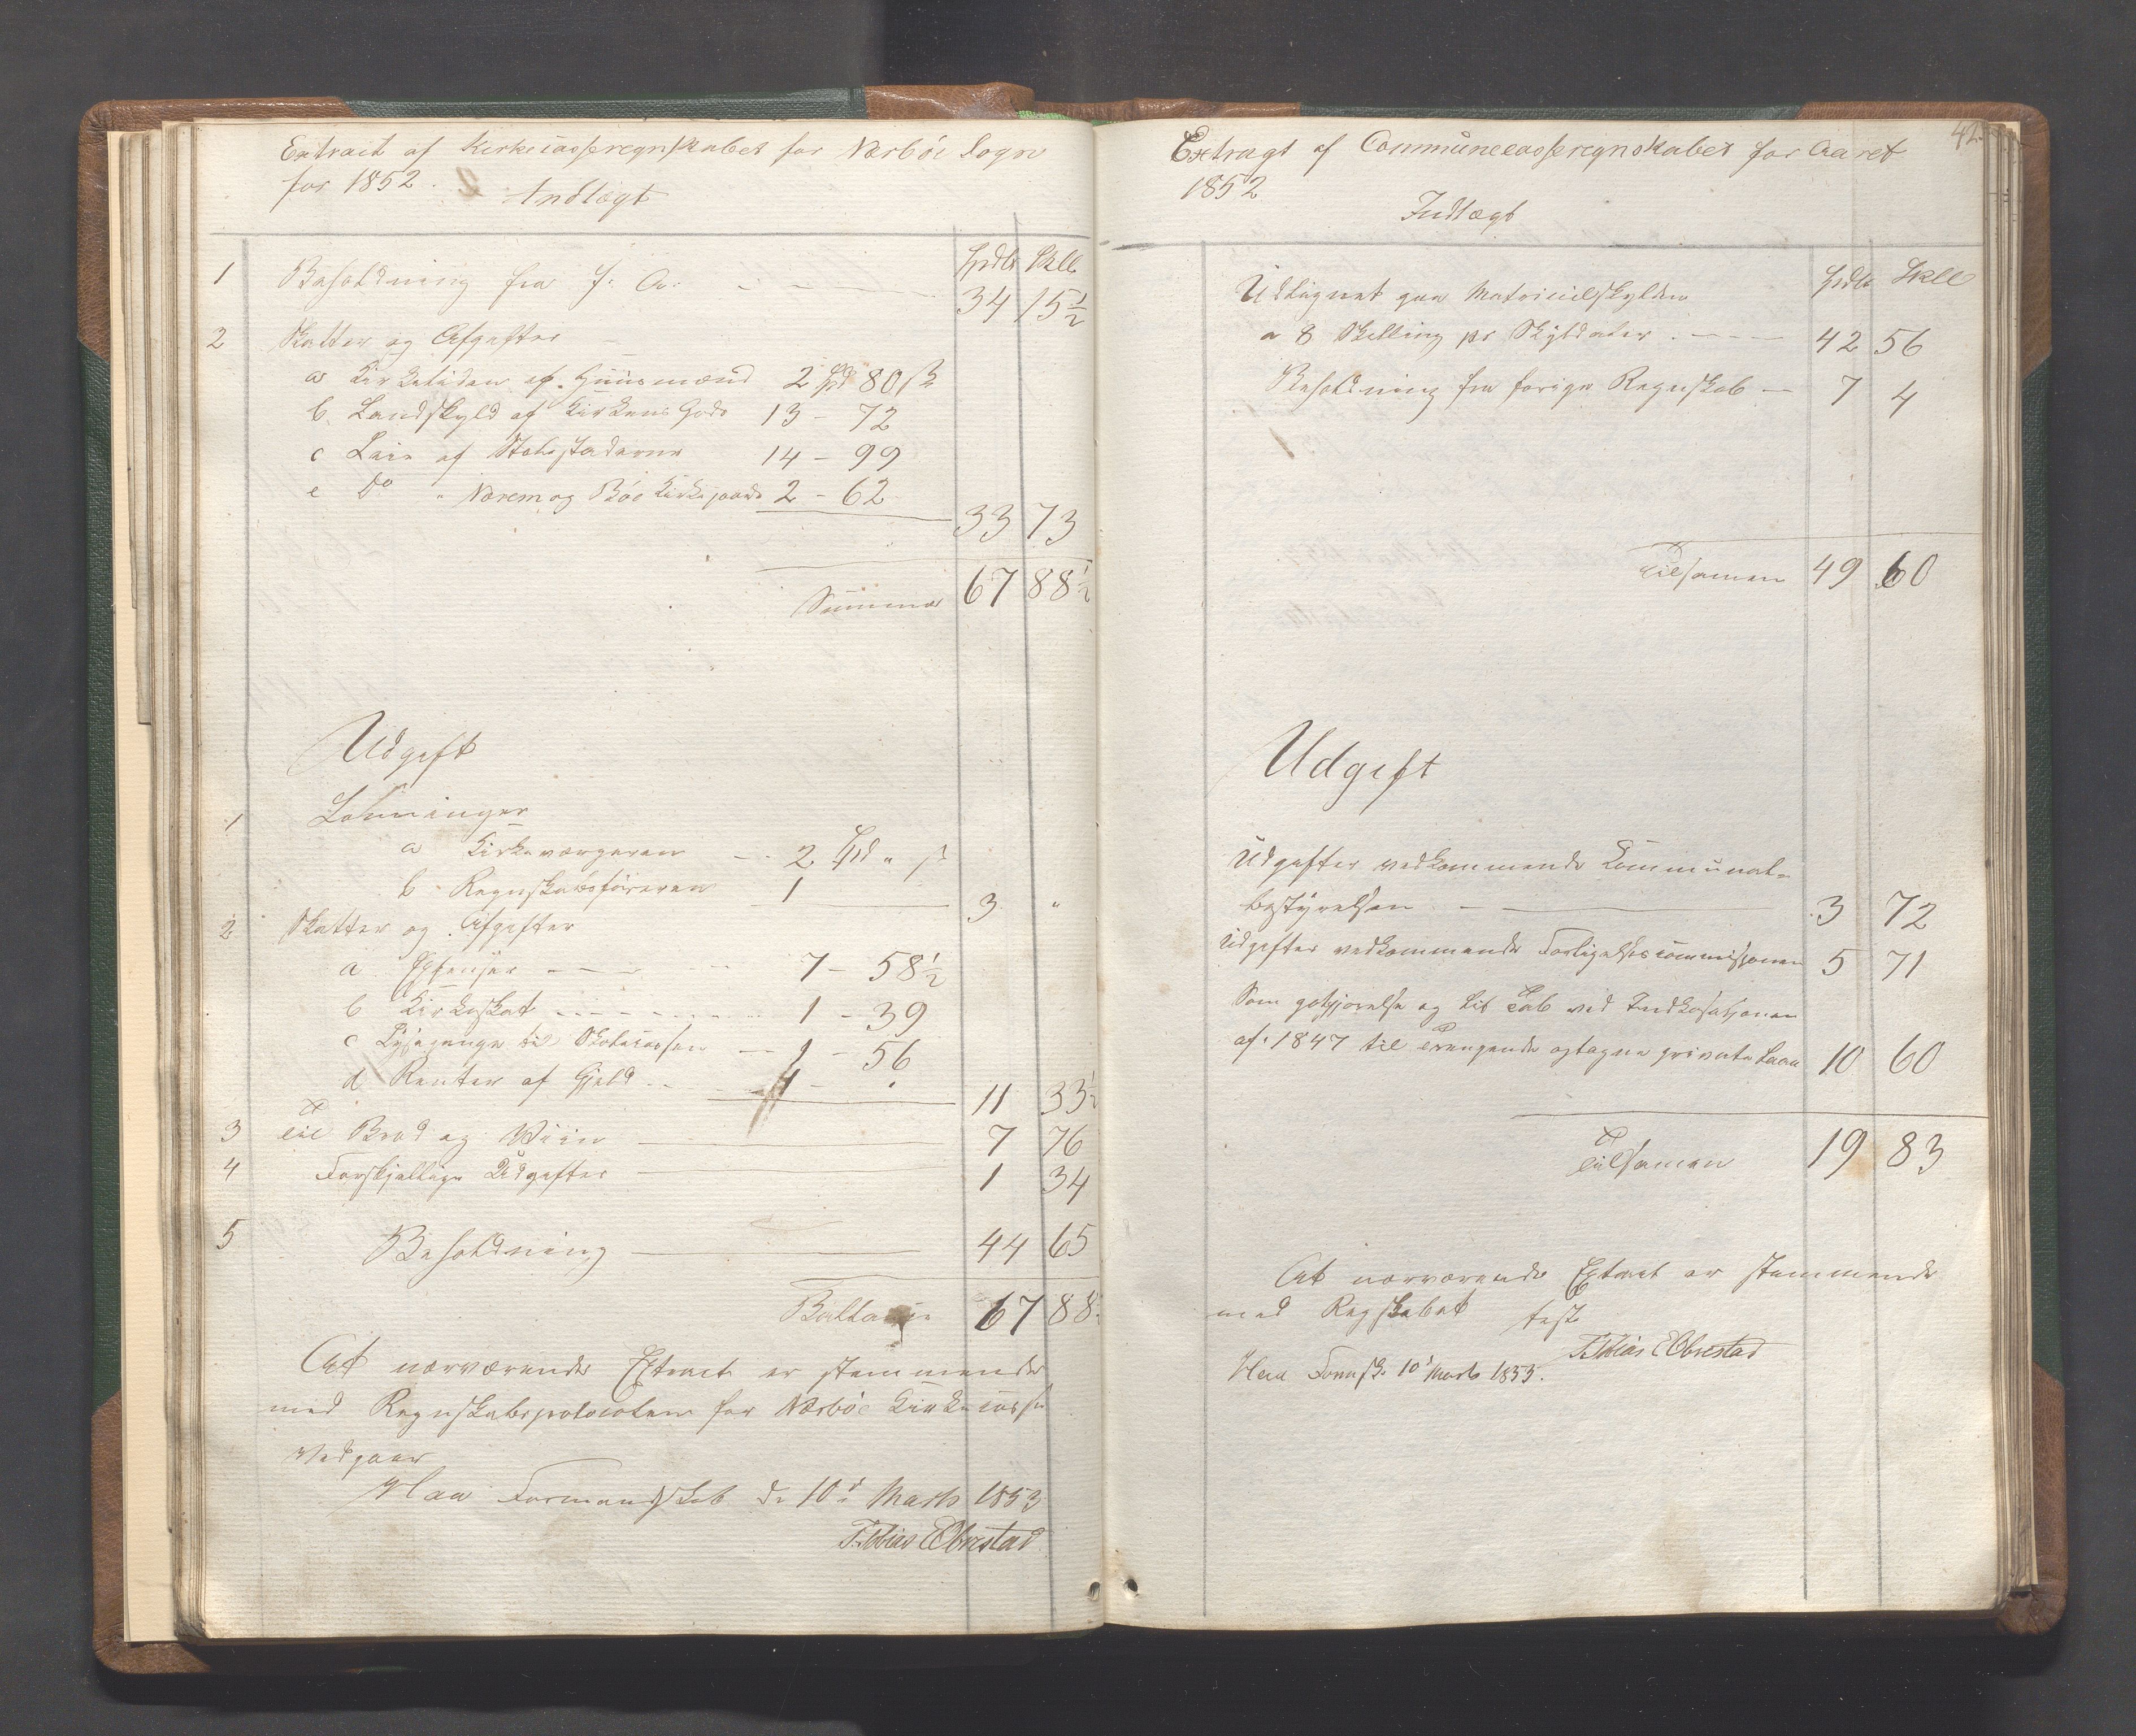 Extrait af Kirkecasseregnskabet for Nærbøe Sogn
for 1852.
Indtægt
Spdlr Skll
1 Beholdning fra f: A: 34 15½
2 Skatter og Afgifter
a Kirketiden af Huusmænd 2 Spd 80 ß
b. Landskyld af Kirkens Gods 13 - 72
c Leie af Stolestaderne 14 - 99
e Do " Nærem og Bøe Kirkejorde 2 - 62
33 73
Summa 67 88½
Udgift
1 Lønninger
a Kirkeværgeren 2 Spd " ß
b Regnskabsføreren 1
3 "
2 Skatter og Afgifter
a 7 - 58½
b Kirkeskat 1 - 39
c til 1 - 56
d Renter af Gjeld 1 - "
11 33½
3 Til Brød og Viin 7 76
4 Forskjellige Udgifter 1 34
5 Beholdning 44 65
Ballance 67 88½
At nærværende Extract er stemmende
med Regnskabsprotocolen for Nærbøe Kirkecasse
Vedgaar
Haa Formandskab d. 10d Marts 1853
Tobias E Obrestad
42
Extragt af Communecasseregnskabet for Aaret
1852
Indtægt
Spdlr Skll
Udlignet paa Matriculskylden
a 8 Skilling pr Skylddaler 42 56
Beholdning fra forige Regnskab 7 4
Tilsamen 49 60
Udgift
Udgifter vedkommende Commünal-
bestyrelsen 3 72
Udgifter vedkommende Forligelsescommissjonen 5 71
Som godtgjørelse og tab ved
af 1847 til Trængende optagne private Laan 10 60
Tilsamen 19 83
At nærværende Extract er stemmende
med Regskabet test
Tobias E Obrestad
Haa Formsk. 10d Marts 1853.